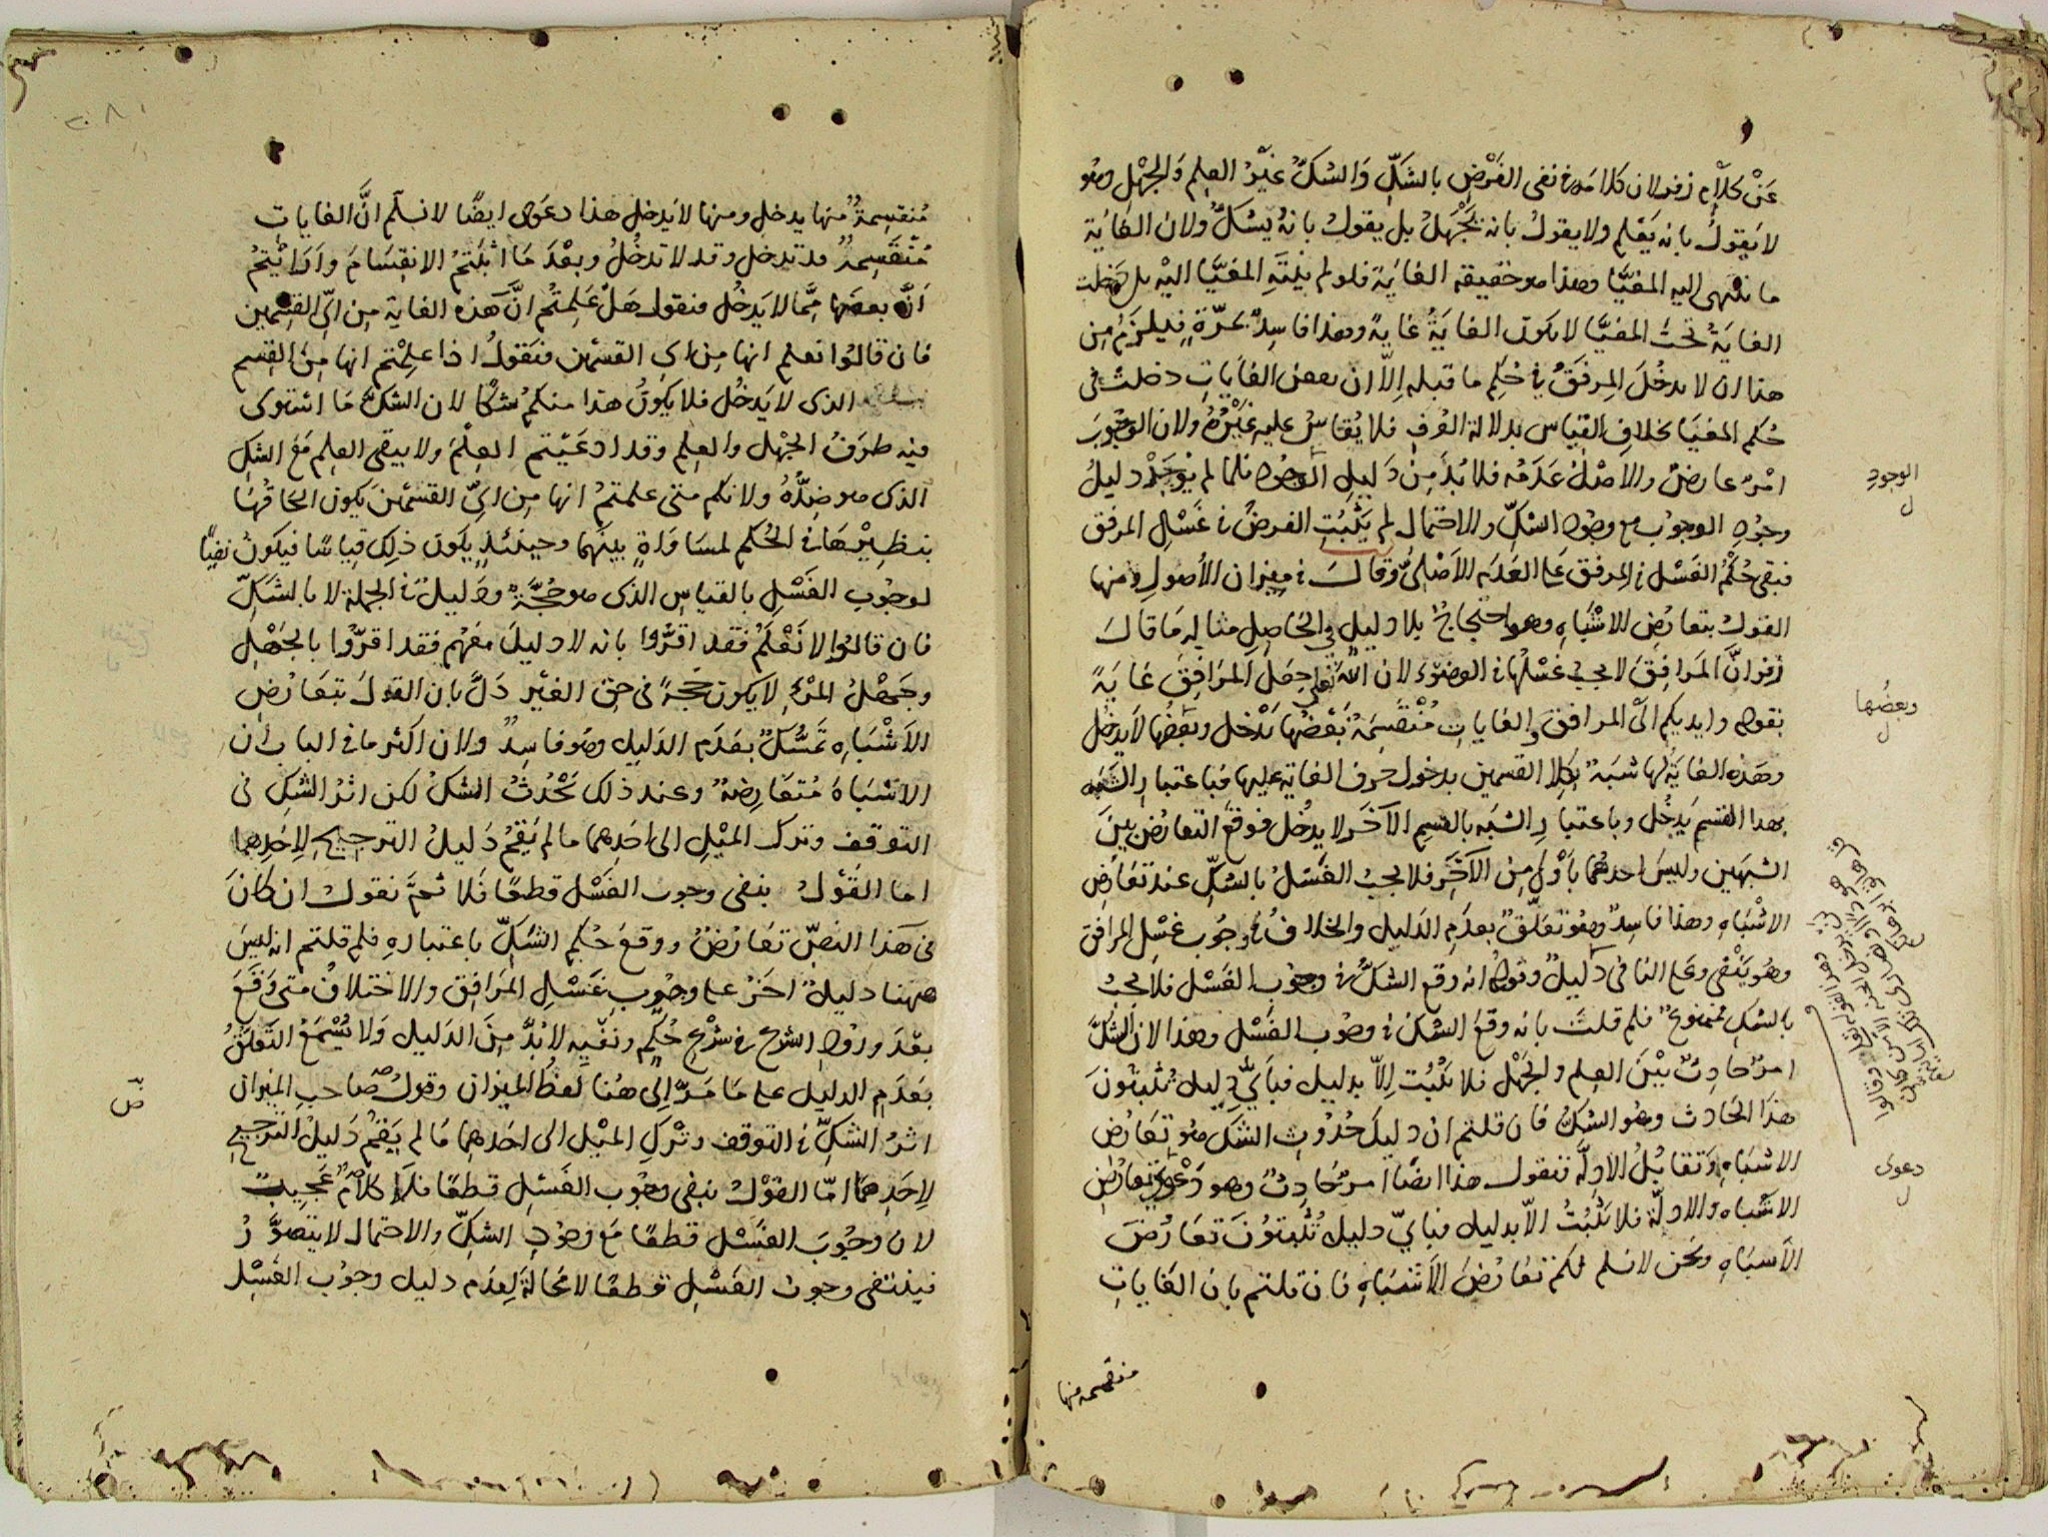 عَنْ كلامِ زفر لان كلامه فى نفى الفَرْضِ بالشَكِّ وَالشكُّ غيْرُ العِلم وَالجهْلِ وهُو
لا يَقولُ بانه يَعْلم ولا يقولُ بانه يَجْهَلُ بل يقول بانهُ يشكُّ ولان الغايَة
ما ينتهى اليه المغيَّا وهذا هو حقيقه الغايَة فلو لم يَنتَهِ المغيَّا اليْه بل دخلت
الغايَةُ تحتَ المغيَّا لا يكون الغايَةُ غايةً وهذا فاسِدٌ بمرّةٍ فيلزَمُ مِن
هذا ان لا يدخُلَ المِرفَقُ فى حُكمِ ما قبله اِلاّ ان بعضَ الغايَاتِ دخلتْ فى
حُكم المغيَا بخلافِ القيَاس بدلالة العُرفِ فلا يُقاسُ عليه غيْرُهُ ولان الوجُوبَ
امْرٌ عارِضٌ والاصْلُ عَدَمُه فلا بُدَّ مِنْ دَليلِ الوجُوه فلما لم يُوجَدْ دليلُ
وجُودِ الوجوب مع وجُودِ الشكِّ والاحتمال لم يَثْبُتِ الفرضُ فى غَسْلِ المرفق
فبقى حُكْمُ الغَسْل فى المِرفق على العَدَمِ الاَصْلىِّ وَقالَ فى ميزان الأصُول ومنها
القول بتعارُضِ الاشْبَاهِ وهو احْتجاجٌ بلا دليلٍ فى الحَاصِل مثاله مَا قالَ
زفر انَّ المَرافِقَ لا يجبُ غَسْلُها فى الوضوْء لان اللهَ تعالى جعَلَ المرَافِقَ غايَةً
بقوله وايديكم الى المرافق والغاياتِ مُنْقسِمَةٌ بَعْضُها تدْخل وبَعْضُها لا يَدخُل
وهَذه الغايَةُ لها شبَهٌ بكِلا القسمين بدخول حرف الغاية عليها فباعتبارِ الشبَه
بهذا القسمِ يَدخُل وباعتبارِ الشبَه بالقسمِ الآخَر لا يدخُل فوقعَ التعارُض بينَ
الشبَهين وليسَ احدهُما بأَوْلى مِن الآخَر فلا يجبُ الغَسْلُ بالشكِّ عند تعَارُض
الاشْبَاهِ وهذا فاسِدٌ وهُو تعَلّقٌ بعدَمِ الدَليلِ والخلافُ فى وجُوب غسْلِ المرافق
وهُو يَنْفى وعلى النافى دَليلٌ وقولُه انه وقع الشكُّ فى وجُوب الغَسْل فلا يجبُ
بالشكِ ممنوعٌ فلم قلتَ بانه وقعَ الشكُ فى وجُوب الغَسْل وهذا لان الشكَّ
امرٌ حَادِثٌ بيْنَ العِلم والجَهْل فلا يَثْبُت اِلاّ بدليل فباَيِّ دليلٍ تُثْبتُونَ
هذَا الحَادث وهُو الشكُّ فان قلتم ان دليلَ حُدُوثِ الشَكِّ هُو تَعَارُضُ
الاشبَاهِ وَتقابُلُ الاَدِلَّة فنقول هذا ايضًا امرٌ حَادِثٌ وهو دَعْوى تعارُضِ
الاشبَاه والادلّة فلا يَثْبُتُ الاّ بدليل فباَيّ دليلٍ تُثْبتُونَ تعَارُضَ
الاَشبَاهِ ونحن لا نسلم لكم تعَارُضَ الاَشبَاهِ فان قلتم بان الغَاياتِ
منقسمه منها
الوجودِ
ل
وبعضُها
ل
دعوى
ل
مُنقسِمةٌ منها يدخل ومنها لا يَدخل هذا دعوى ايضًا لا نسلّم انَّ الغاياتِ
مُنْقسِمةٌ قد تدخل وقد لا تدخُلُ وبعْدَ مَا اثْبَتمُ الانقسَامَ واَرَاَيْتمُ
اَنَّ بعضَها مِمَّا لا يَدخُل فنقول هَلْ عَلِمتُم انَّ هَذه الغايَة مِن اىِّ القِسْمين
فان قالُوا نعلم انها مِن اى القسْمين فنَقولُ اذا علِمْتم انها مِنَ القِسم
الذى لا يَدخُل فلا يكونُ هذا منكم شكًّا لان الشكَّ مَا استوى
فيه طرَفُ الجهْل والعِلم وقد ادعَيْتم العِلْمَ ولا يبقى العِلم مَعَ الشكِ
الذى هو ضِدُّهُ ولانكم متى علمتمُ انها مِن اىِّ القسْمَيْن يَكون الحَاقُها
بنظِيْرِهَا فى الحُكم لمسَاوَاةٍ بينَهما وحينئذٍ يكون ذلِك قيَاسًا فيكون نفيًا
لوجُوبِ الغَسْلِ بالقياسِ الذى هو حُجَّةٌ ودَليلٌ فى الجملة لا بالشَكِّ
فان قالوُا لا نَعْلَمُ فقد اقرُّوا بانه لا دليلَ معَهُم فقد اقرُّوا بالجَهْلِ
وجَهْلُ المرْءِ لا يكون حجةً فى حق الغيْر دَلَّ بان القولَ بتعَارُضِ
الاَشْبَاهِ تمسُّكٌ بعدَم الدَليل وهُو فاسِدٌ ولان اكثر ما فى الباب ان
الاشبَاهَ مُتعَارِضةٌ وعند ذلك يَحْدُثُ الشكُ لكن اثرُ الشكِ فى
التوقف وترك الميْلِ الى احَدِهما ما لم يَقُمْ دَليلُ الترجيح لاحَدِهما
اما القَوْلُ بنفى وجوب الغَسْل قطعًا فَلا ثمَّ نقول ان كانَ
فى هَذا النصِّ تعَارُضٌ ووقعَ حُكم الشَكِّ باعتبارِهِ فلم قلتم انه ليسَ
ههُنا دليلٌ اخَرُ على وجوبِ غَسْلِ المَرَافق والاختلافُ متى وَقعَ
بعْدَ ورُودِ الشرْع فى شرْعِ حُكمٍ ونفيِه لا بُدَّ مِنَ الدَليل وَلا يُسْمَعُ التَعَلقُ
بعَدَمِ الدليل على مَا مَرّ اِلى هُنا لفظُ الميزان وقولُ صَاحبِ الميزان
اثرُ الشكِّ فى التوقف وتْركِ الميْل الى احَدهما مَا لم يَقُمْ دَليلُ الترجيحِ
لاِحَدِهمَا امّا القوْلُ بنفى وجُوب الغَسْلِ قطعًا فلا كلامٌ عَجيبٌ
لان وجُوبَ الغَسْلِ قطعًا مَع وجُودِ الشكِّ والاحتمال لا يتصوَّرُ
فينتفى وجوبُ الغَسْلِ قطعًا لا مَحالةَ لِعدَم دليل وجُوب الغَسْل